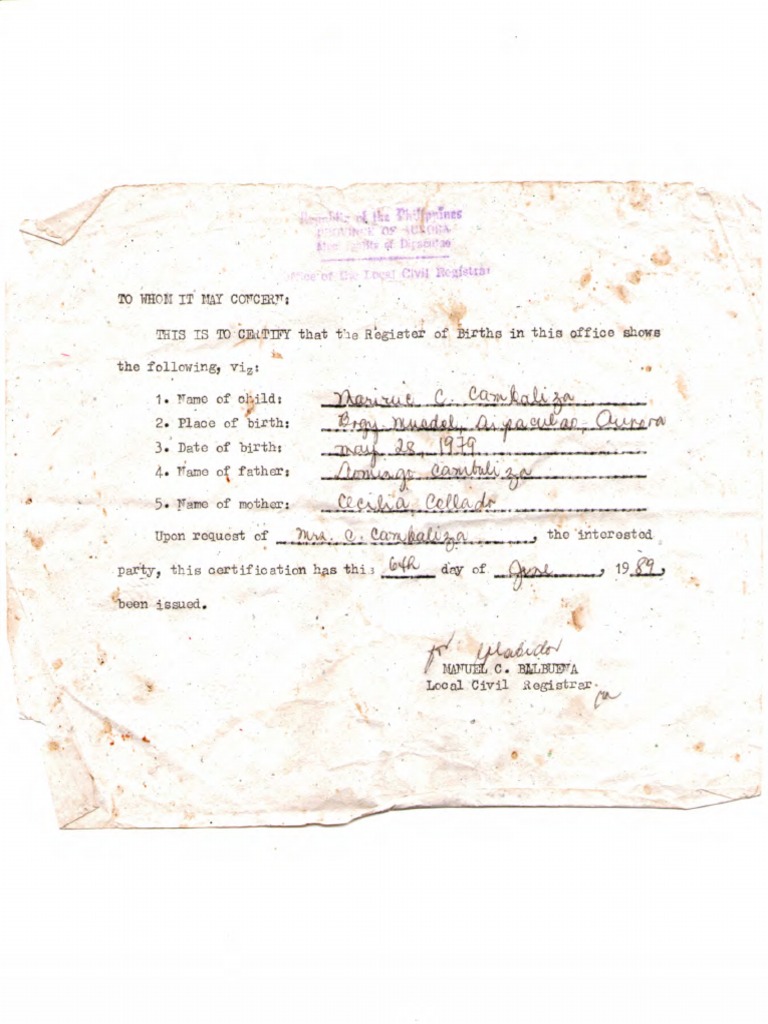 Republic of the Philippines
PROVINCE OF AURORA
of Dipaculao
Office of the Local Civil Registrar
TO WHOM IT MAY CONCERN:
THIS IS TO CERTIFY that the Register of Births in this office shows
the following, viz:
1. Name of child: C. Cambaliza
2. Place of birth: Brgy Mucdol, Dipaculao, Aurora
3. Date of birth: May 28, 1979
4. Name of father: Domingo Cambaliza
5. Name of mother: Cecilia Collado
Upon request of Mrs. C. Cambaliza, the interested
party, this certification has this 6th day of June, 1989,
been issued.
for
MANUEL C. BALBUENA
Local Civil Registrar